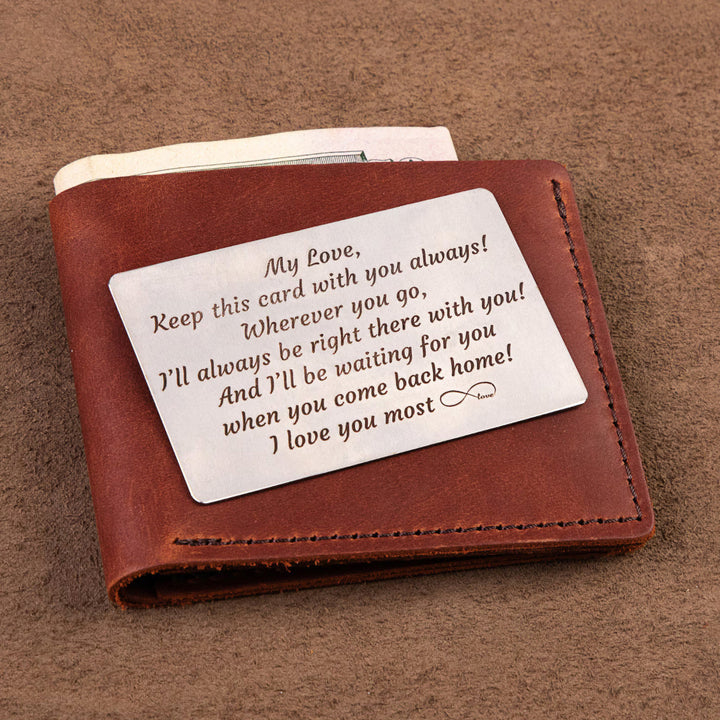 My Love,
Keep this card with you always!
Wherever you go,
I'll always be right there with you!
And I'll be waiting for you
when you come back home!
I love you most love